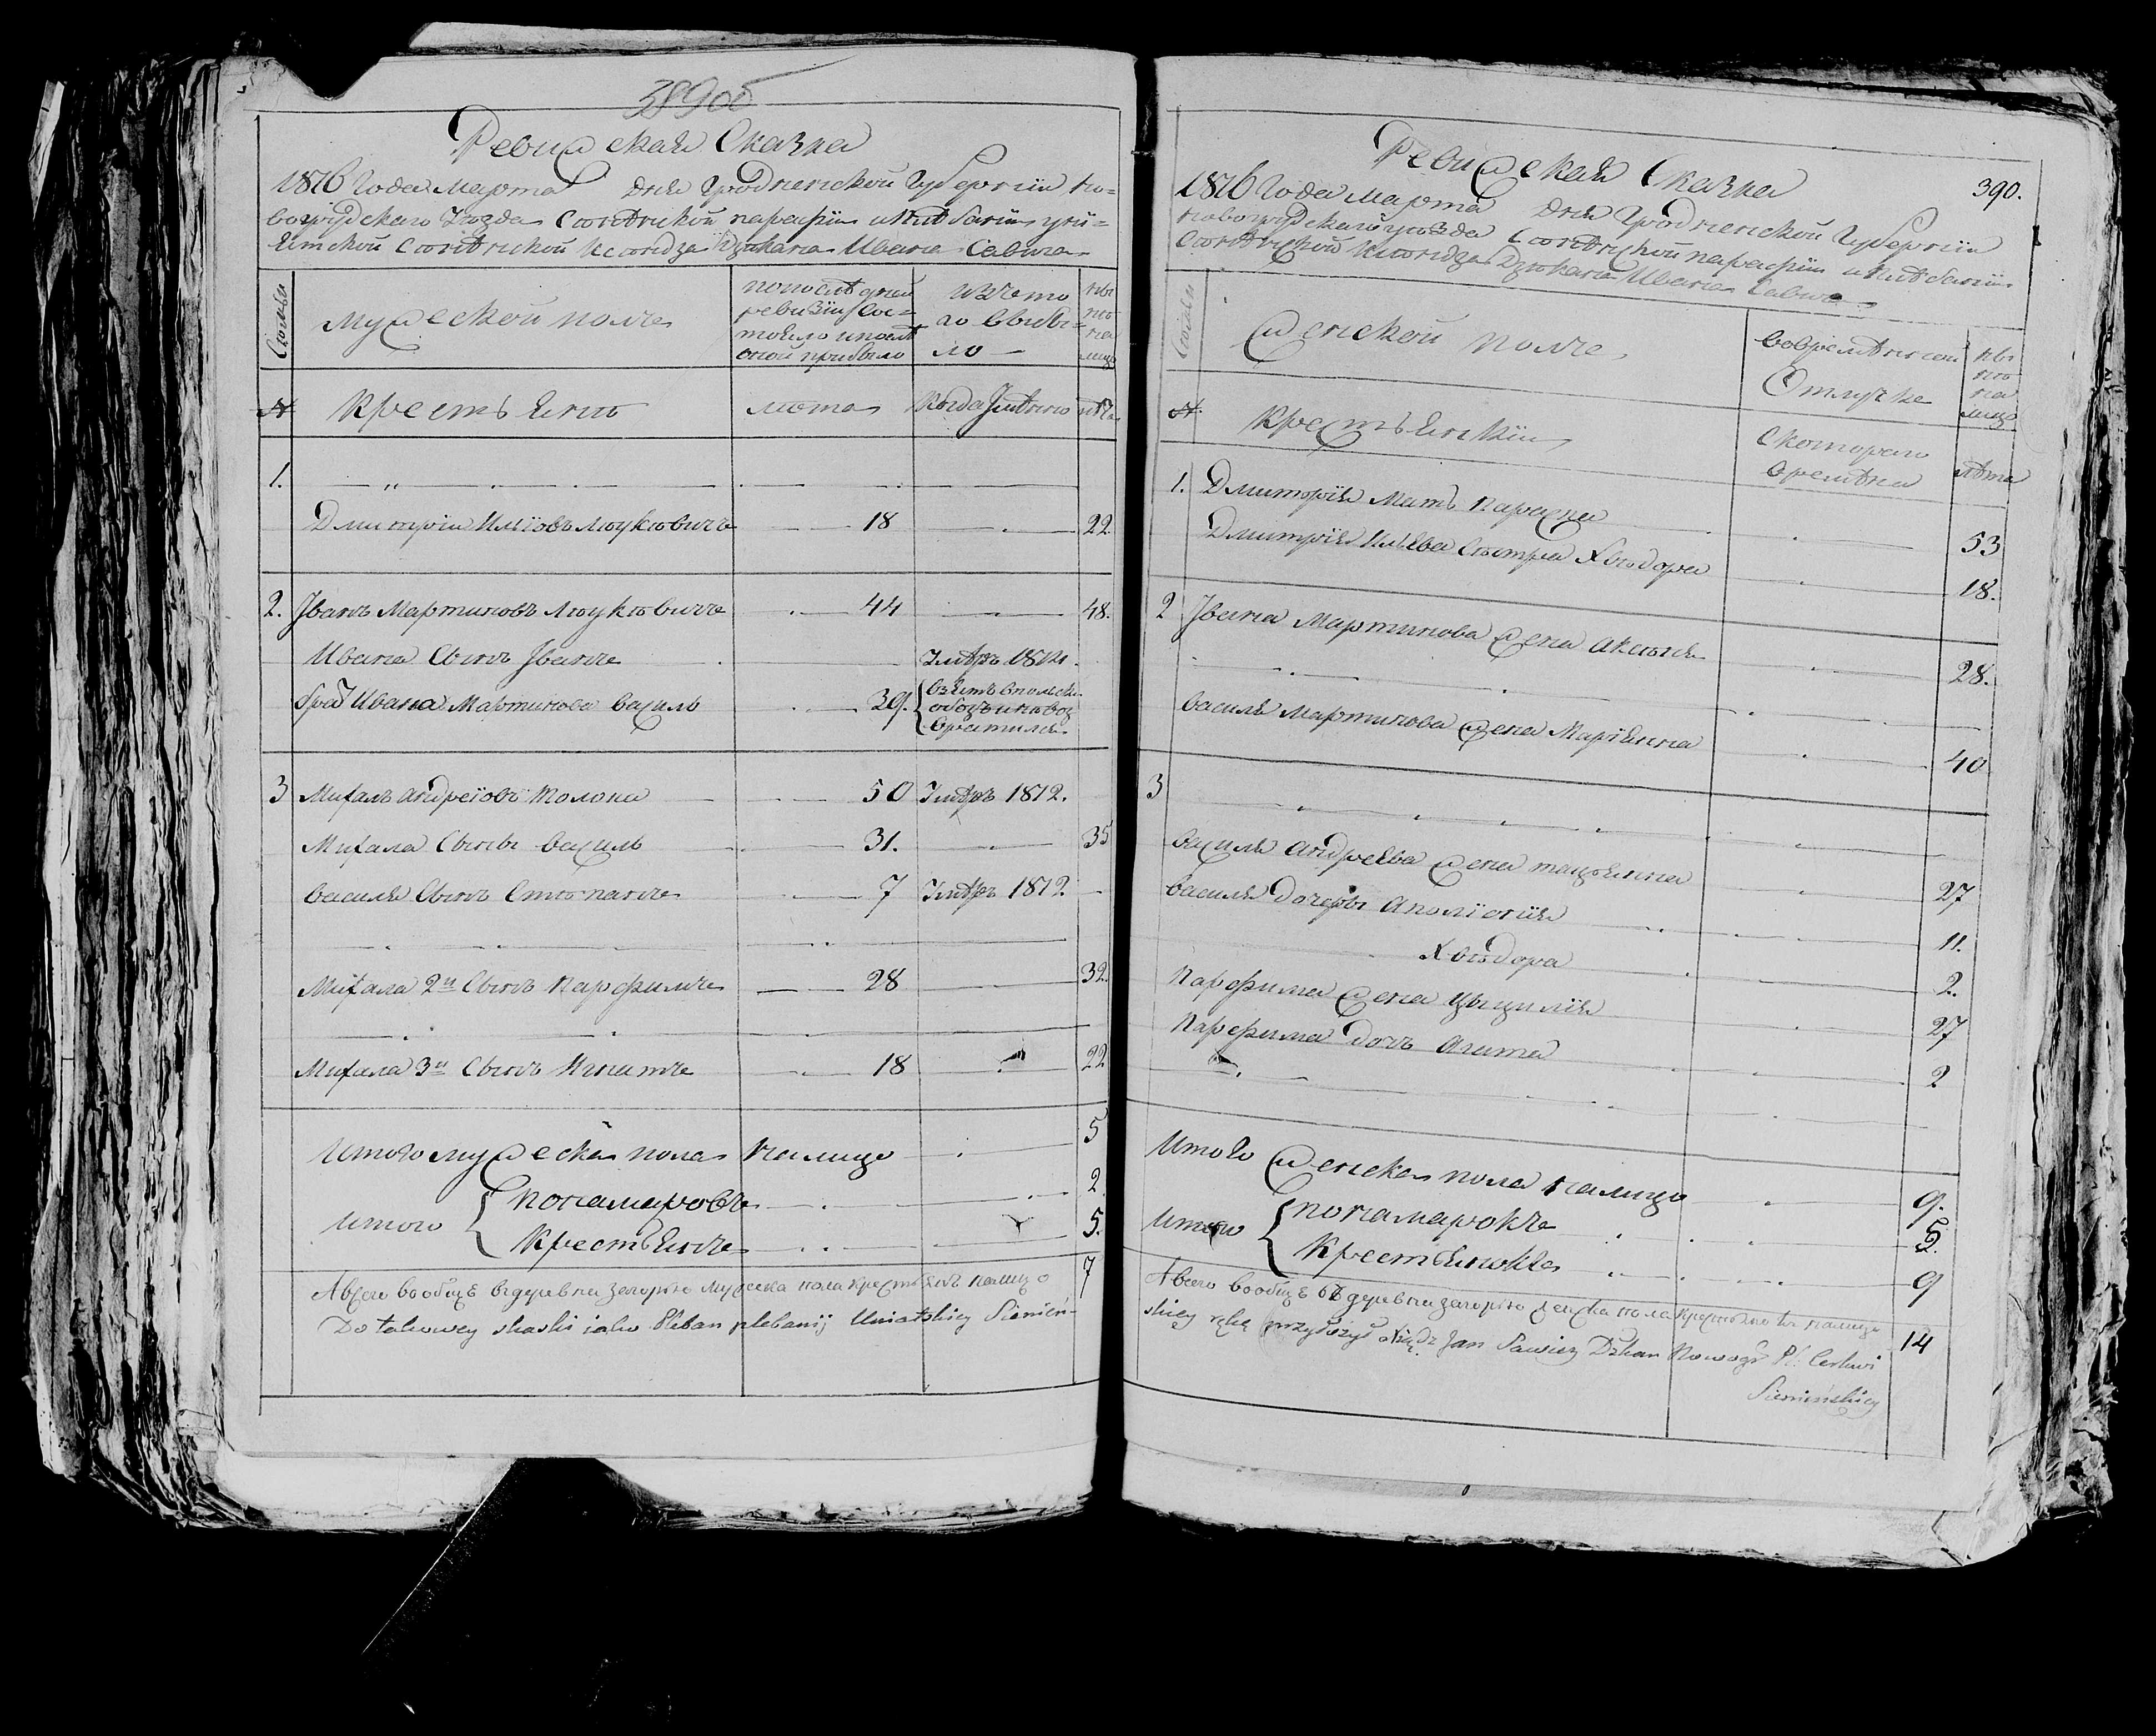 389об
Ревижская Сказка
1816 Года Марта Дня Гродненской Губернiи но=
вогрудского Уезда Сенѣнской парафiи и плѣбанiи унi=
ятской Сенѣнской Ксендза Дзекана Ивана Савича
Мужеской полъ
по послѣдней
ревизiи Сос=
тояло и послѣ
оной прибыло
изъ того
Выбы=
ло
ны
не
на
лицо
№ Крестьяне лета Когда Имѣнно лѣта
1.
Дмитрiй Илiовъ Люцкевичъ 18 22
2. Iванъ Мартиновъ Люцкевичъ 44 48.
Ивана Сынъ Iванъ Умѣръ 1812.
братъ Ивана Мартинова Василь 39. взятъ в польски
обозъ и невоз
вратился
3 Михалъ Андреiовъ Толока 50 Умѣръ 1812.
Михала Сыны Василь 31. 35
Василя Сынъ Степанъ 7 Умѣръ 1812
Михала 2й Сынъ Парфимъ 28 32.
Михала 3й Сынъ Игнатъ 18 22
Итого мужеска пола налицо 5
Итого { понамаровъ 2
Крестьянъ 5.
А всего вообще въ деревни Загорье Мужеска пола крестьянъ налицо 7
Do takowey skaski iako Pleban plebanij Uniatskiey Sienień-
390.
Ревижская Сказка
1816 Года Марта Дня Гродненской Губернiи
новогрудского уезда Сенѣнской парафiи и плѣбанiи
Сенѣнской Ксендза Дзекана Ивана Савича
Женской полъ
во временной
Отлучке
ны
не
на
лицо
№ Крестьянкiи
С которого
времѣна
лѣта
1. Дмитрiя Мать Параска 53
Дмитрiя Ильева Сѣстра Хвѣдора 18.
2 Iвана Мартинова жена Аксѣня 28.
Василя Мартинова жена Марiянна 40
3
Василя Андреева жена Тацянна 27
Василя Дочеры Аполiонiя 11.
Хвѣдора 2.
Парфима жена Цыцилiя 27
Парфима Дочъ Анита 2
Итого женска пола налицо 9.
Итого { понамарокъ 5.
Крестьянокъ 9
А всего вообще въ деревни Загорье женска пола крестьянокъ налицо 14
skiey rękę przyłożył Xiądz Jan Sawicz Dzkan Nowogr Pl: Cerkwi
Sienieńskiey